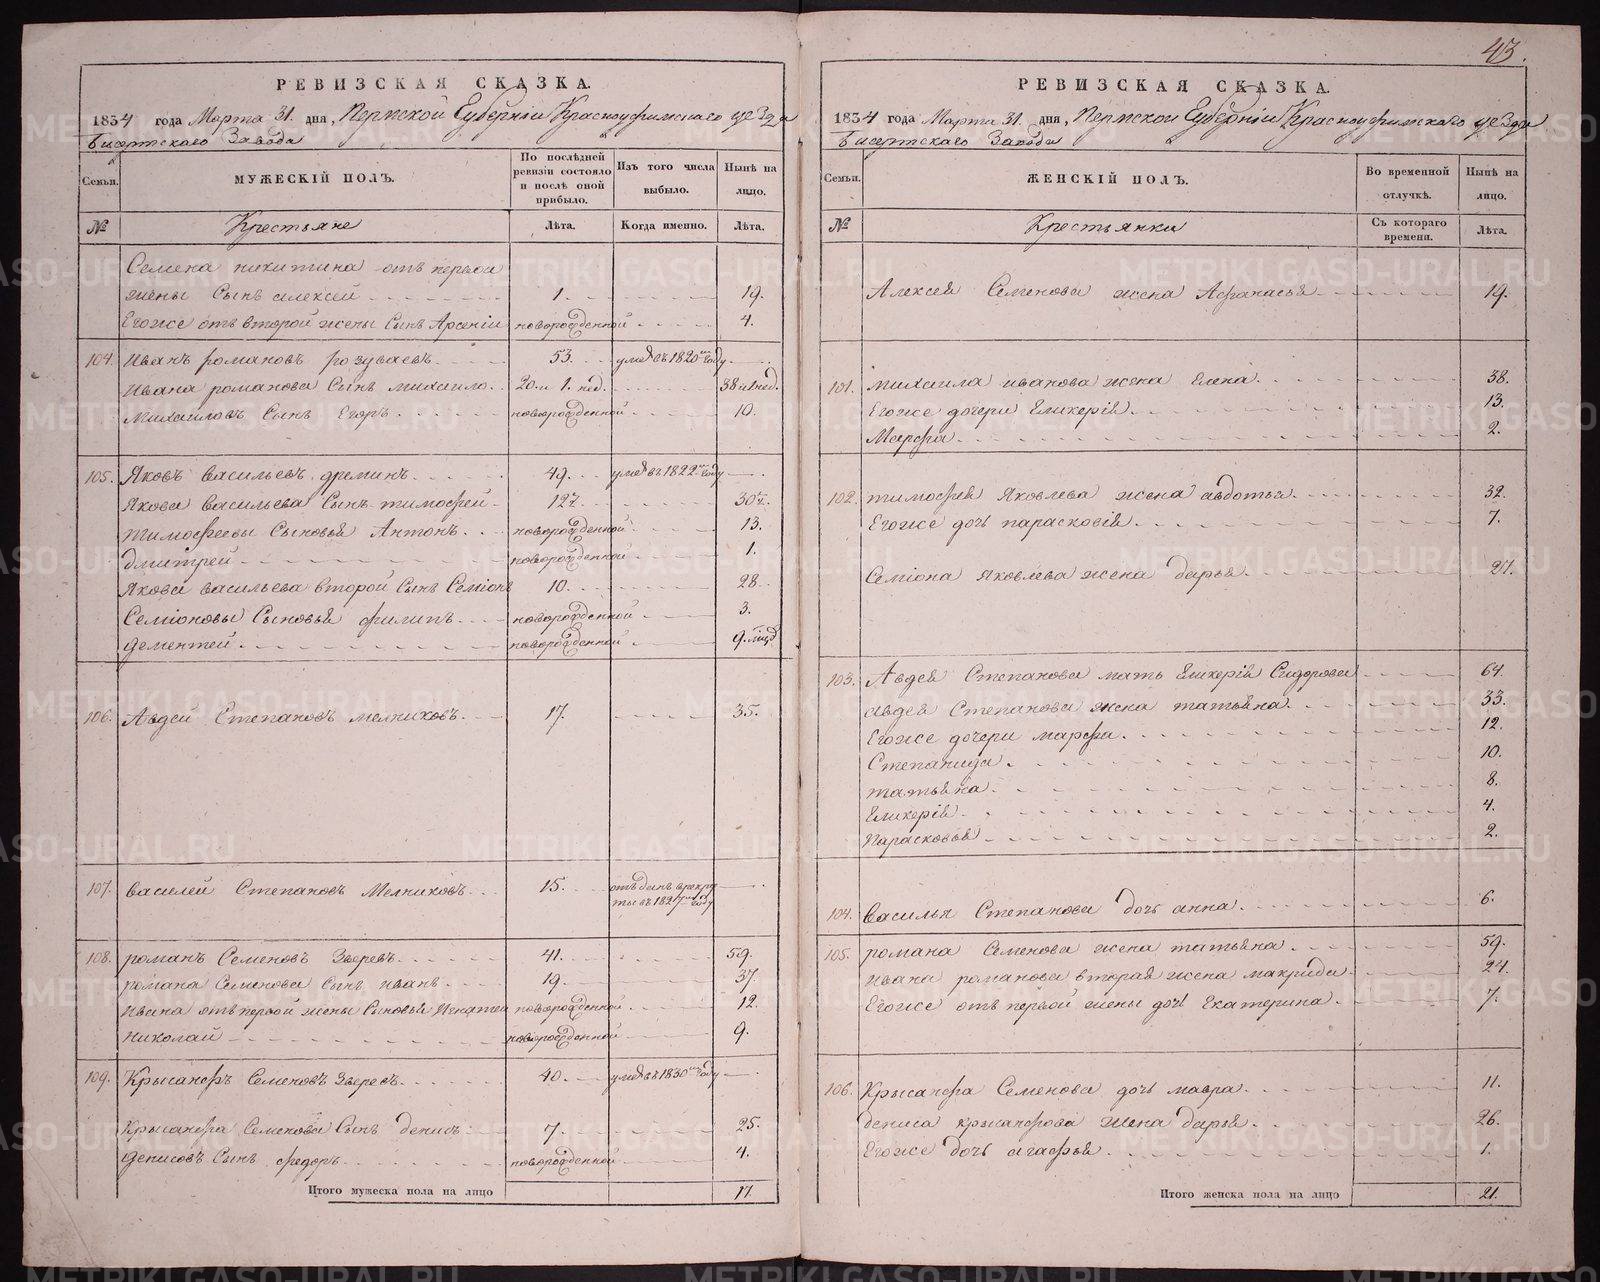 43.
РЕВИЗСКАЯ СКАЗКА.
1834 года Марта 31. дня, Пермской Губерніи Красноуфимскаго уезда
Бисертскаго Завода
Семьи.
МУЖЕСКІЙ ПОЛЪ.
По послѣдней ревизіи состояло и послѣ оной прибыло.
Изъ того числа выбыло.
Нынѣ на лицо.
№
Крестьяне
Лѣта.
Когда именно.
Лѣта.
Семена никитина отъ первой
жены Сынъ алексей 1. 19.
Егоже отъ второй жены Сынъ Арсеній новорожденной 4.
104. Иванъ романовъ розуваевъ 53. умре въ 1820 м году
Ивана романова Сынъ михаило 20. и 1. нед. 38 и 1 нед.
Михаиловъ Сынъ Егоръ новорожденной 10.
105. Яковъ васильевъ фроминъ 49. умре въ 1822 м году
Якова васильева Сынъ тимофей 12 30
тимофеевы Сыновья Антонъ новорожденной 13.
дмитрей новорожденной 1.
Якова васильева второй Сынъ Семіонъ 10. 28.
Семіоновы Сыновья филипъ новорожденной 3.
дементей новорожденной 9.
106. Авдей Степановъ мелниковъ 17. 35.
107. василей Степановъ Мелниковъ 15. отъданъ врекру
ты въ 1827 м году
108. романъ Семеновъ Зверевъ 41. 59.
романа Семенова сынъ иванъ 19. 37.
ивана отъ первой жены Сыновья Игнатей новорожденной 12.
николай новорожденной 9.
109. Крысанфъ Семеновъ Зверевъ 40. умре въ 1830 м году
Крысанфа Семенова Сынъ денисъ 7. 25.
денисовъ Сынъ федоръ новорожденной 4.
Итого мужеска пола на лицо 17.
РЕВИЗСКАЯ СКАЗКА.
1834 года Марта 31. дня, Пермской Губерніи Красноуфимскаго уезда
Бисертскаго Завода
Семьи.
ЖЕНСКІЙ ПОЛЪ.
Во временной отлучкѣ.
Нынѣ на лицо.
№
Крестьянки
Съ котораго времени.
Лѣта.
Алексея Семенова жена Афанасья 19.
101. михаила иванова жена Елена 38.
Егоже дочери Гликерія 13.
Марфа 2.
102. тимофея Яковлева жена авдотья 32.
Егоже дочь парасковія 7.
Семіона Яковлева жена дарья 27.
103. Авдея Степанова мать Гликерія Сидорова 64.
авдея Степанова жена татьяна 33.
Егоже дочери марфа 12.
Степанида 10.
татьяна 8.
Гликерія 4.
Парасковья 2.
104. васильа Степанова дочь анна 6.
105. романа Семенова жена татьяна 59.
ивана романова вторая жена макрида 24.
Егоже отъ первой жены дочь Екатерина 7.
106. Крысанфа Семенова дочь мавра 11.
дениса крысанфова жена дарья 26.
Егоже дочь агафья 1.
Итого женска пола на лицо 21.
METRIKI.GASO-URAL.RU